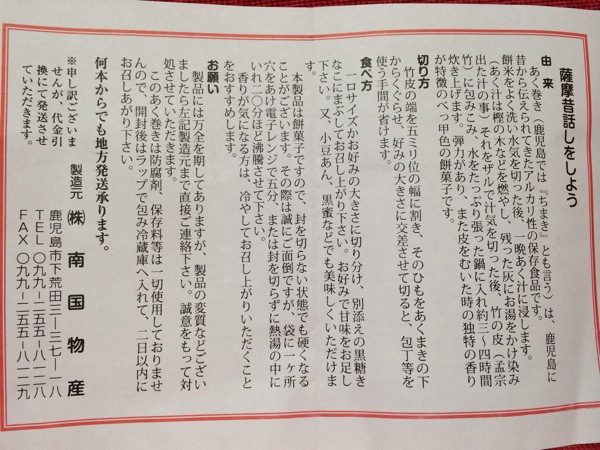 薩摩昔話しをしよう
由来
あく巻き(鹿児島では『ちまき』とも言う)は、鹿児島に
昔から伝えられてきたアルカリ性の保存食品です。
餅米をよく洗い水気を切った後、一晩あく汁に浸します。
(あく汁は樫の木などを燃やし、残った灰にお湯をかけ染み
出た汁の事)それをザルで汁気を切った後、竹の皮(孟宗
竹)に包みこみ、水をたっぷり張った鍋に入れ約三〜四時間
炊き上げます。弾力があり、また皮をむいた時の独特の香り
が特徴のべっ甲色の餅菓子です。
切り方
竹皮の端を五ミリ位の幅に割き、そのひもをあくまきの下
からくぐらせ、好みの大きさに交差させて切ると、包丁等を
使う手間が省けます。
食べ方
一口サイズかお好みの大きさに切り分け、別添えの黒糖き
なこにまぶしてお召し上がり下さい。お好みで甘味をお足し
下さい。又、小豆あん、黒蜜などでも美味しくいただけま
す。
本製品は餅菓子ですので、封を切らない状態でも硬くなる
ことがございます。その際は誠にご面倒ですが、袋に一ヶ所
穴をあけ電子レンジで五分、または封を切らずに熱湯の中に
いれ二〇分ほど沸騰させて下さい。
香りが気になる方は、冷やしてお召し上がりいただくこと
をおすすめします。
お願い
製品には万全を期してありますが、製品の変質などござい
ましたら左記製造元まで直接ご連絡下さい。誠意をもって対
処させていただきます。
このあく巻きは防腐剤、保存料等は一切使用しておりませ
んので、開封後はラップで包み冷蔵庫へ入れて、二日以内に
お召しあがり下さい。
何本からでも地方発送承ります。
※申し訳ございま
せんが、代金引
換にて発送させ
ていただきます。
製造元 ㈱南国物産
鹿児島市下荒田三-三七-一八
TEL 〇九九-二五五-八一二八
FAX 〇九九-二五五-八一二九